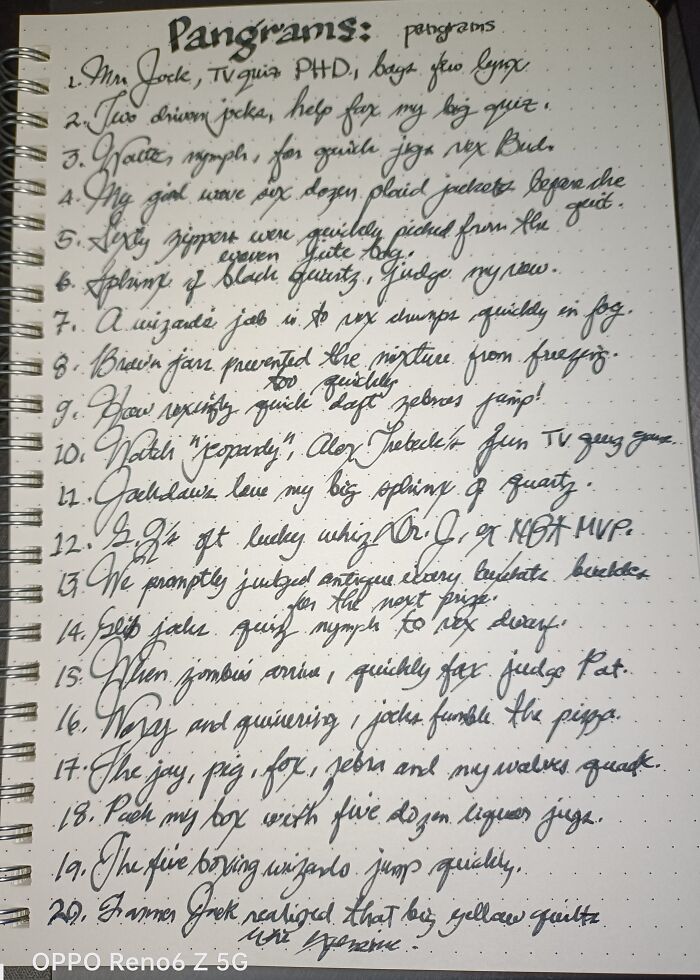 Pangrams: pangrams
1. Mr. Jock, TV quiz PHD, bags few lynx.
2. Two driven jocks, help fax my big quiz.
3. nymph, for quick jigs vex Bud.
4. My girl wove six dozen plaid jackets before she
quit.
5. Sixty zippers were quickly picked from the
woven jute bag.
6. Sphinx of black quartz, judge my vow.
7. A wizard's job is to vex chumps quickly in fog.
8. Brown jars prevented the mixture from freezing.
too quickly
9. How vexingly quick daft zebras jump!
10. Watch "jeopardy", Alex Trebeck's fun TV quiz game.
11. Jackdaws love my big sphinx of quartz.
12. oft lucky whiz Dr. J, ex NBA MVP.
13. We promptly judged antique ivory buckles
for the next prize.
14. Glib jocks quiz nymph to vex dwarf.
15. When zombies arrive, quickly fax judge Pat.
16. and quivering, jocks fumble the pizza.
17. The jay, pig, fox, zebra and my wolves quack.
18. Pack my box with five dozen liquor jugs.
19. The five boxing wizards jump quickly.
20. Farmer Jack realized that big yellow quilts
were
OPPO Reno6 Z 5G